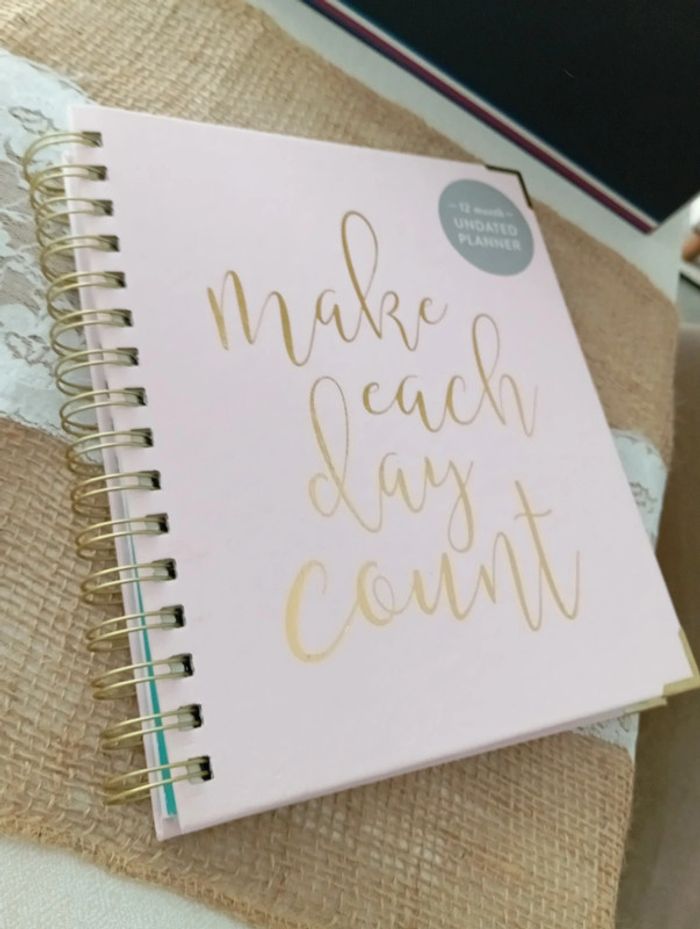 - 12 month -
UNDATED
PLANNER
make
each
day
count